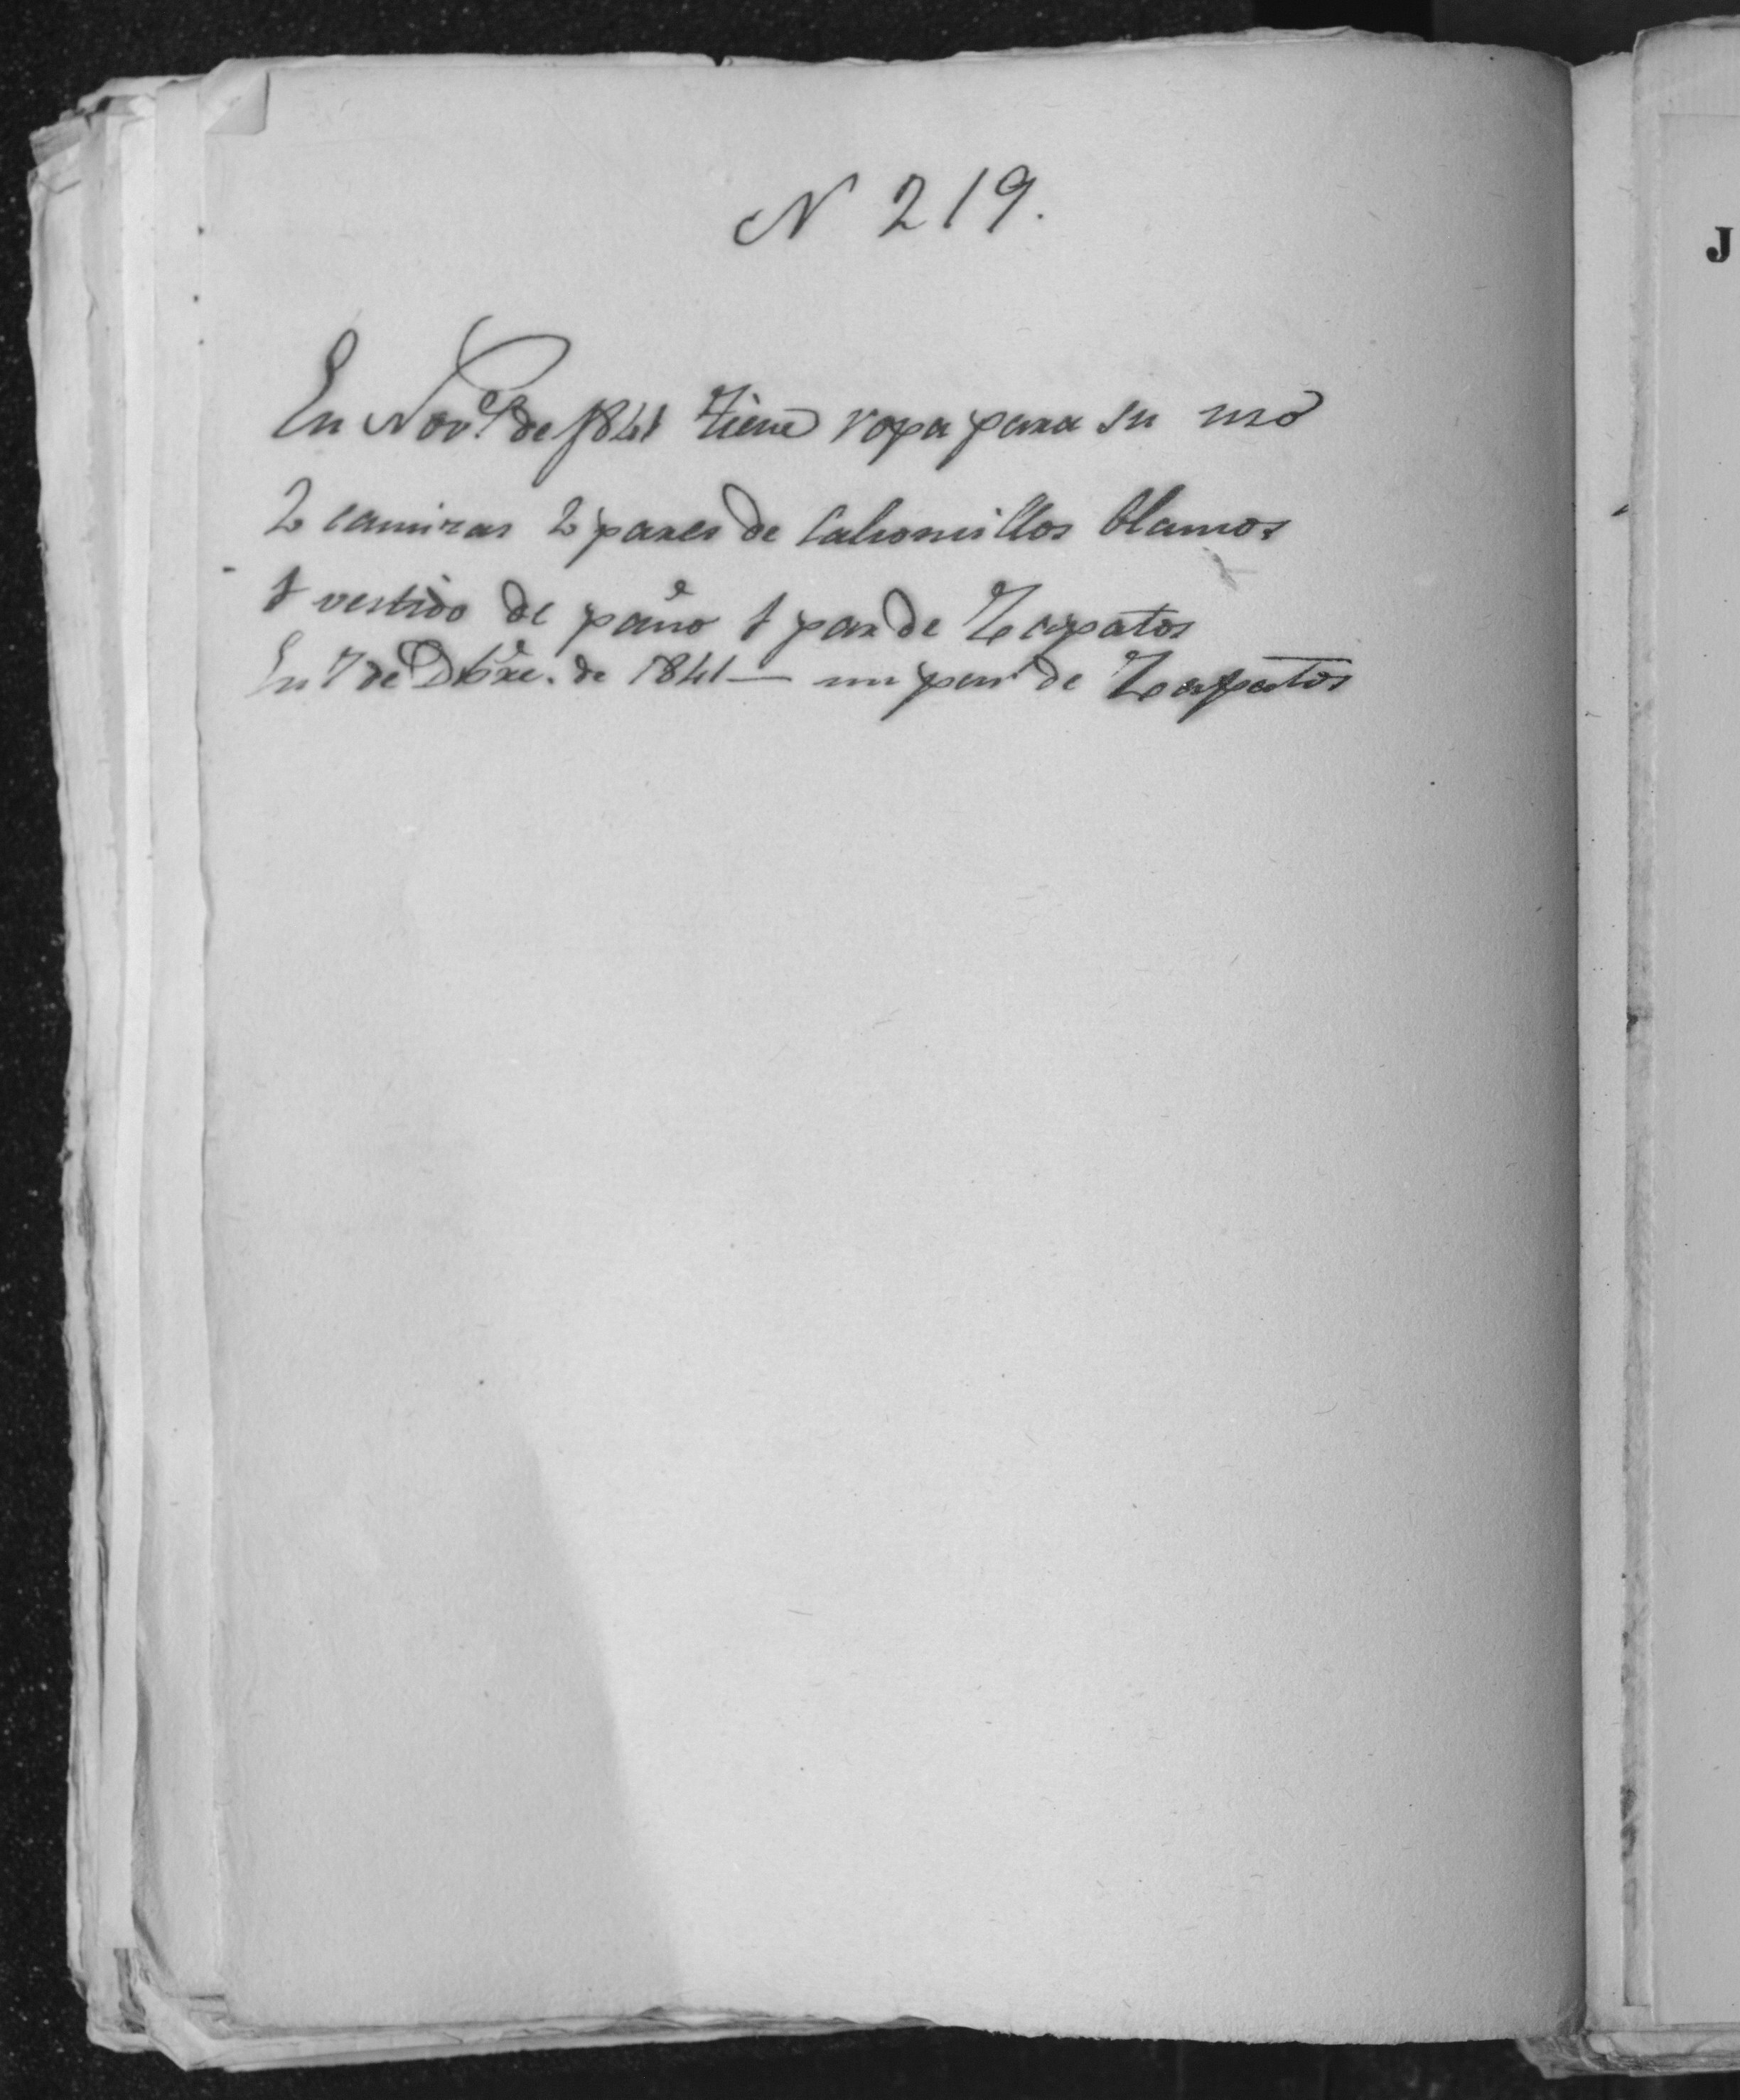 N 219.
En Nov.e de 1841 tiene ropa para su uso
2 camisas 2 pares de Calsonsillos blancos
1 vestido de paño 1 par de Zapatos
En 7 de Dbre. de 1841 — un par de Zapatos
J